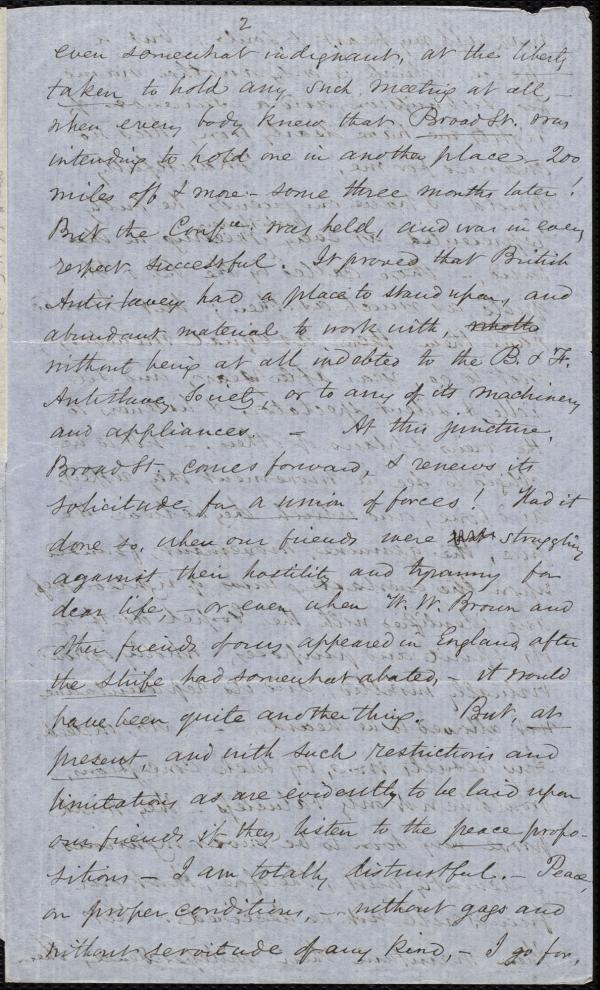 2
even somewhat indignant, at the liberty
taken to hold any such meeting at all, -
when every body knew that Broad St. was
intending to hold one in another place - 200
miles off & more - some three months later!
But the Confce. was held, and was in every
respect successful. It proved that British
Antislavery had a place to stand upon, and
abundant material to work with,
without being at all indebted to the B. & F.
Antislavy Society, or to any of its machinery
and appliances. - At this juncture,
Broad St. comes forward, & renews its
solicitude for a union of forces! Had it
done so, when our friends were struggling
against their hostility and tyranny for
dear life, - or even when W. W. Brown and
other friends of ours appeared in England, after
the strife had somewhat abated, - it would
have been quite another thing. But, at
present, and with such restrictions and
limitations as are evidently to be laid upon
our friends if they listen to the peace propo-
sitions - I am totally distrustful. - Peace,
on proper conditions, - without gags and
without servitude of any kind, - I go for,